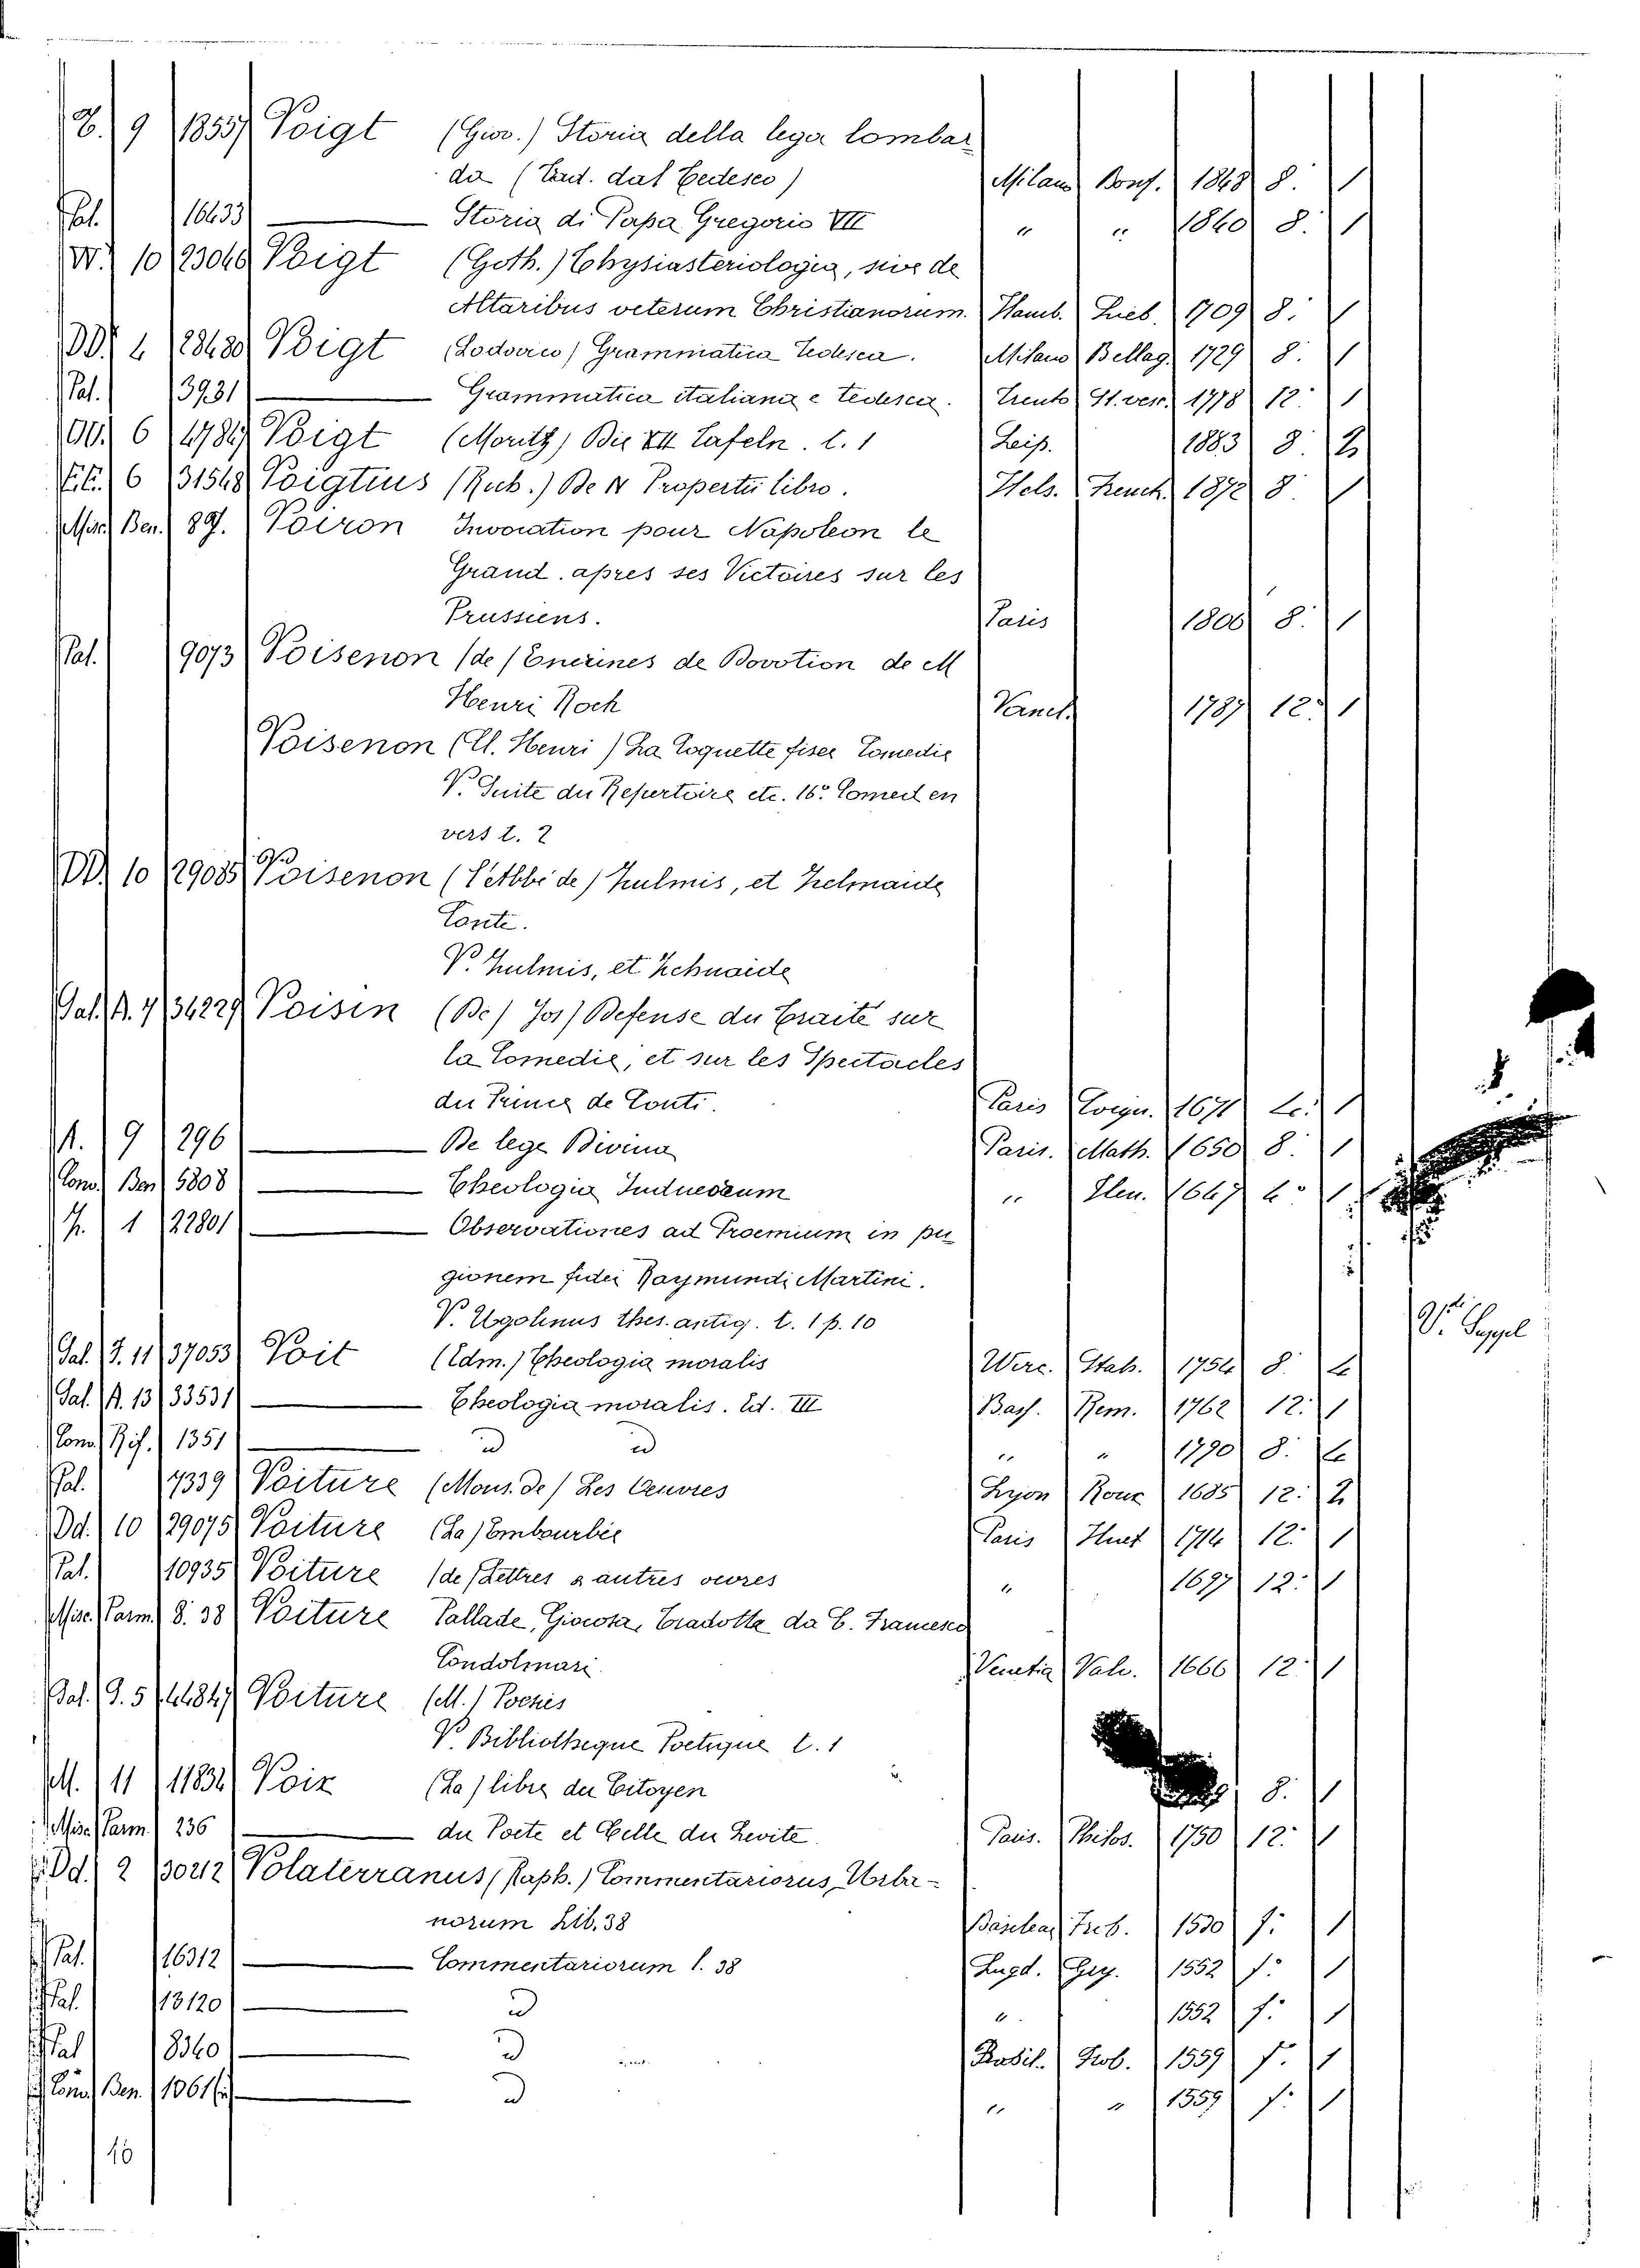 Z. 9 18557 Voigt (Giov.) Storia della lega lombar
da (Trad. dal Tedesco) Milano Bonf. 1848 8. 1
Pal. 16433 Storia di Papa Gregorio VII " " 1840 8. 1
W. 10 23046 Voigt (Goth.) Thysiasteriologia, sive de
Altaribus veterum Christianorum. Hamb. Lieb. 1709 8. 1
DD. 4 28480 Voigt (Lodovico) Grammatica Tedesca. Milano Bellag. 1729 8. 1
Pal. 13931 Grammatica italiana e tedesca. Trento St. ver. 1778 12. 1
6 4784 Voigt (Moritz) Die XII Tafeln. t. 1 Leip. 1883 8. 2
6 31548 Voigtius (Rub.) De IV Propertii libro. Hels. Frenck. 1872 8. 1
Misc. Ben. 89. Voiron Invocation pour Napoleon le
Grand. apres ses Victoires sur les
Prussiens. Paris 1806 8. 1
Pal. 9073 Voisenon (de) de Devotion de M
Henri Roch 1787 12. 1
Voisenon (Cl. Henri) La Coquette fisee Comedie
V. Suite du Repertoire etc. 16.º Comed en
vers t. 2
DD. 10 29085 Voisenon (l'Abbé de) Zulmis, et Zelmaide
Conte.
V. Zulmis, et Zelmaide
Gal. A. 7 34229 Voisin (De) Jos) Defense du Traité sur
la Comedie, et sur les Spectacles
du Prince de Conti. Paris Coign. 1671 4. 1
A. 9 296 De lege Divina Paris. Math. 1650 8. 1
Conv. Ben. 5808 Theologia Iudaeorum " Hen. 1647 4. 1
1 22801 Observationes ad Proemium in pu
gionem fidei Raymundi Martini.
V. Ugolinus thes. antiq. t. 1 p. 10
V. Seppel
Gal. F. 11 37053 Voit (Edm.) Theologia moralis Wirc. Stah. 1754 8. 4
Gal. A. 13 33531 Theologia moralis. Ed. III Bass. Rem. 1762 12. 1
Conv. Rif. 1351 id id " " 1790 8.
Pal. 7339 Voiture (Mons. de) Les Oeuvres Lyon Roux 1685 12. 2
Dd. 10 29075 Voiture (La) Embourbée Paris Huet 1714 12. 1
Pal. 10935 Voiture (de) Lettres & autres ovvres " 1697 12. 1
Misc. Parm. 8. 38 Voiture Pallade, Giocosa, Tradotta da C. Francesco
Condolmari Venetia Valv. 1666 12. 1
Pal. G. 5 44847 Voiture (M.) Poesies
V. Bibliotheque Poetique t. 1
M. 11 11834 Voix (La) libre du Citoyen 8. 1
Misc. Parm. 236 du Poete et Celle du Levite Paris. Philos. 1750 12. 1
Dd. 2 30212 Volaterranus (Raph.) Commentariorus Urba-
norum Lib. 38 Basilea Frob. 1530 f. 1
Pal. 16312 Commentariorum l. 38 Lugd. Gry. 1552 f. 1
Pal. 13120 id " 1552 f. 1
Pal. 8340 id Basil. Frob. 1559 f. 1
Conv. Ben. 1061 id " " 1559 f. 1
16